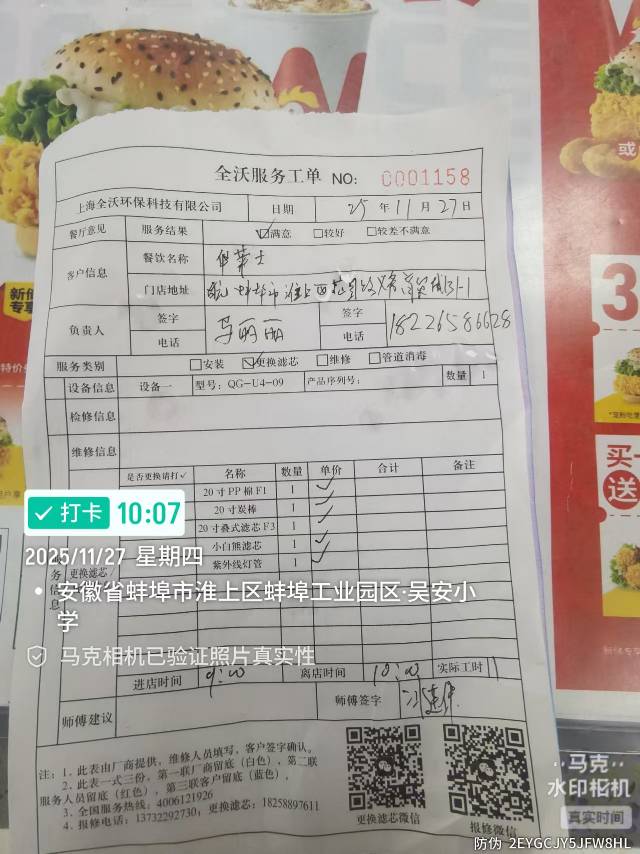 全沃服务工单 NO: 0001158
上海全沃环保科技有限公司 日期 25 年 11 月 27 日
餐厅意见 服务结果 ☑满意 □较好 □较差不满意
客户信息 餐饮名称 华莱士
门店地址
负责人 签字 马丽丽 签字
电话 电话 18226586628
服务类别 □安装 ☑更换滤芯 □维修 □管道消毒
设备信息 设备一 型号: QG-U4-09 产品序列号: 数量 1
检修信息
维修信息
是否更换请打✓ 名称 数量 单价 合计 备注
20寸PP棉F1 1 ✓
20寸炭棒 1 ✓
20寸叠式滤芯F3 1 ✓
小白熊滤芯 1 ✓
紫外线灯管 1 ✓
更换滤芯
务信息
进店时间 9:00 离店时间 10:00 实际工时 1
师傅建议 师傅签字
注: 1. 此表由厂商提供, 维修人员填写, 客户签字确认。
2. 此表一式三份, 第一联厂商留底 (白色), 第二联
服务人员留底 (红色), 第三联客户留底 (蓝色),
3. 全国服务热线: 4006121926
4. 报修电话: 13732292730; 更换滤芯: 18258897611
更换滤芯微信
报修微信
打卡 10:07
2025/11/27 星期四
安徽省蚌埠市淮上区蚌埠工业园区·吴安小
学
马克相机已验证照片真实性
马克
水印相机
真实时间
防伪 2EYGCJY5JFW8HL
或
3
买一
送